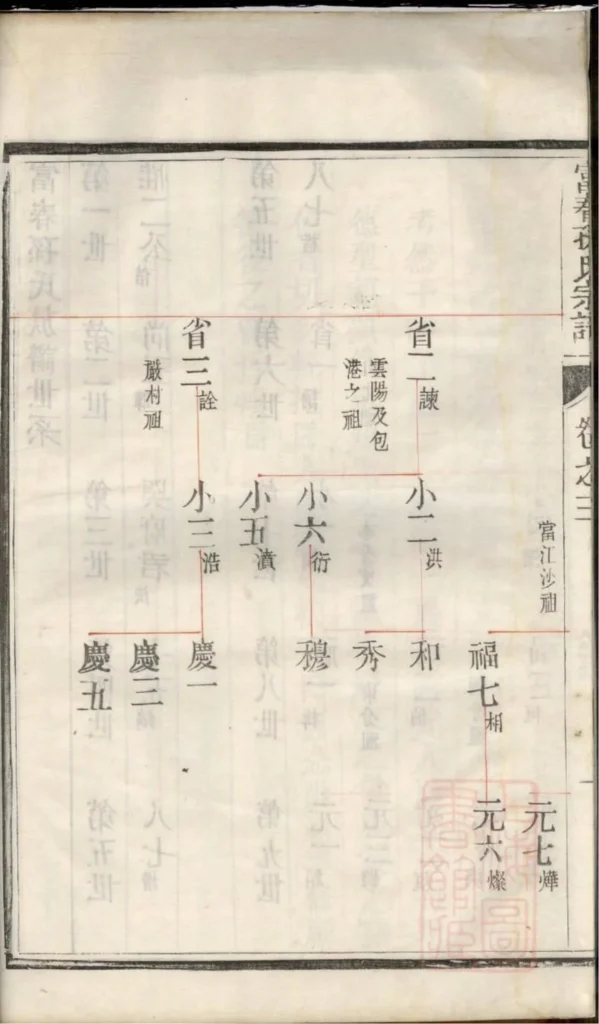 富春孫氏宗譜
卷之三
元七 燁
富江沙祖
福七 相
元六 燦
省二 諫
小二 洪
和
雲陽及包
港之祖
秀
小六 衍
穆
小五 濆
省三 詮
小三 浩
慶一
嚴村祖
慶三
慶五